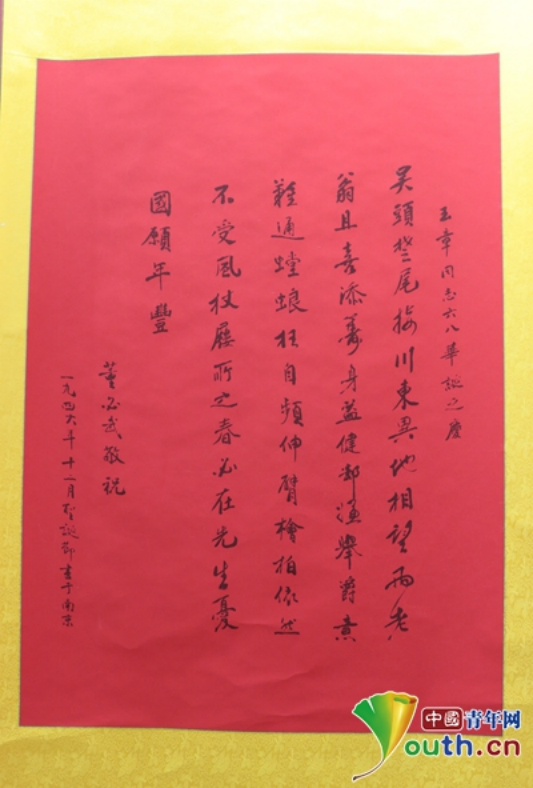 玉章同志六八華誕之慶
吳頭楚尾接川東異地相望兩老
翁且喜添籌身益健卻舉爵意
難通螳螂狂自頻伸臂檜柏依然
不受風杖屨所之春必在先生憂
國願年豐
董必武敬祝
一九四六年十二月聖誕節書于南京
中國青年网
Youth.cn